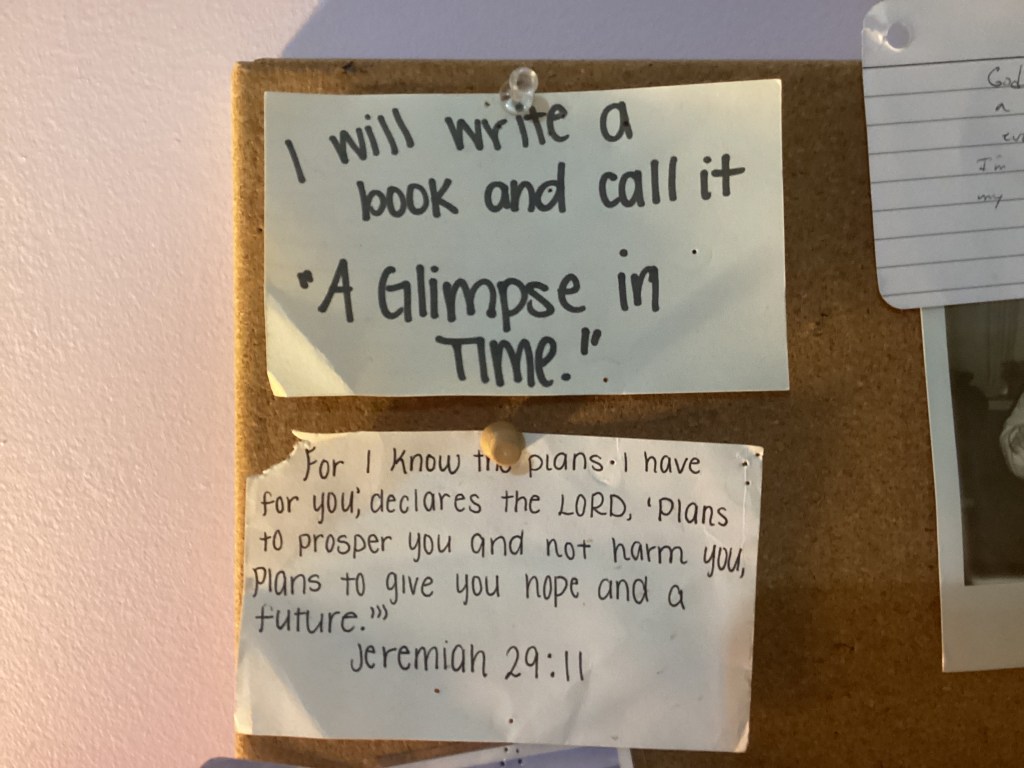 I will write a
book and call it
"A Glimpse in
Time."
For I know the plans I have
for you,' declares the LORD, 'plans
to prosper you and not harm you,
plans to give you hope and a
future.'"
Jeremiah 29:11
God
a
I'm
my